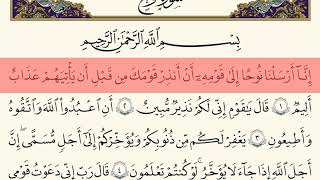 بِسْمِ ٱللَّهِ ٱلرَّحْمَٰنِ ٱلرَّحِيمِ
إِنَّآ أَرْسَلْنَا نُوحًا إِلَىٰ قَوْمِهِۦٓ أَنْ أَنذِرْ قَوْمَكَ مِن قَبْلِ أَن يَأْتِيَهُمْ عَذَابٌ
أَلِيمٌ ١ قَالَ يَٰقَوْمِ إِنِّى لَكُمْ نَذِيرٌ مُّبِينٌ ٢ أَنِ ٱعْبُدُوا۟ ٱللَّهَ وَٱتَّقُوهُ
وَأَطِيعُونِ ٣ يَغْفِرْ لَكُم مِّن ذُنُوبِكُمْ وَيُؤَخِّرْكُمْ إِلَىٰٓ أَجَلٍ مُّسَمًّى إِنَّ
أَجَلَ ٱللَّهِ إِذَا جَآءَ لَا يُؤَخَّرُ لَوْ كُنتُمْ تَعْلَمُونَ ٤ قَالَ رَبِّ إِنِّى دَعَوْتُ قَوْمِى